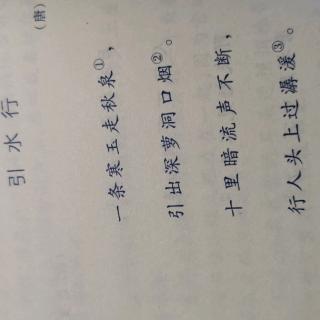 引水行
(唐)
一条寒玉走秋泉①，
引出深萝洞口烟②。
十里暗流声不断，
行人头上过潺湲③。